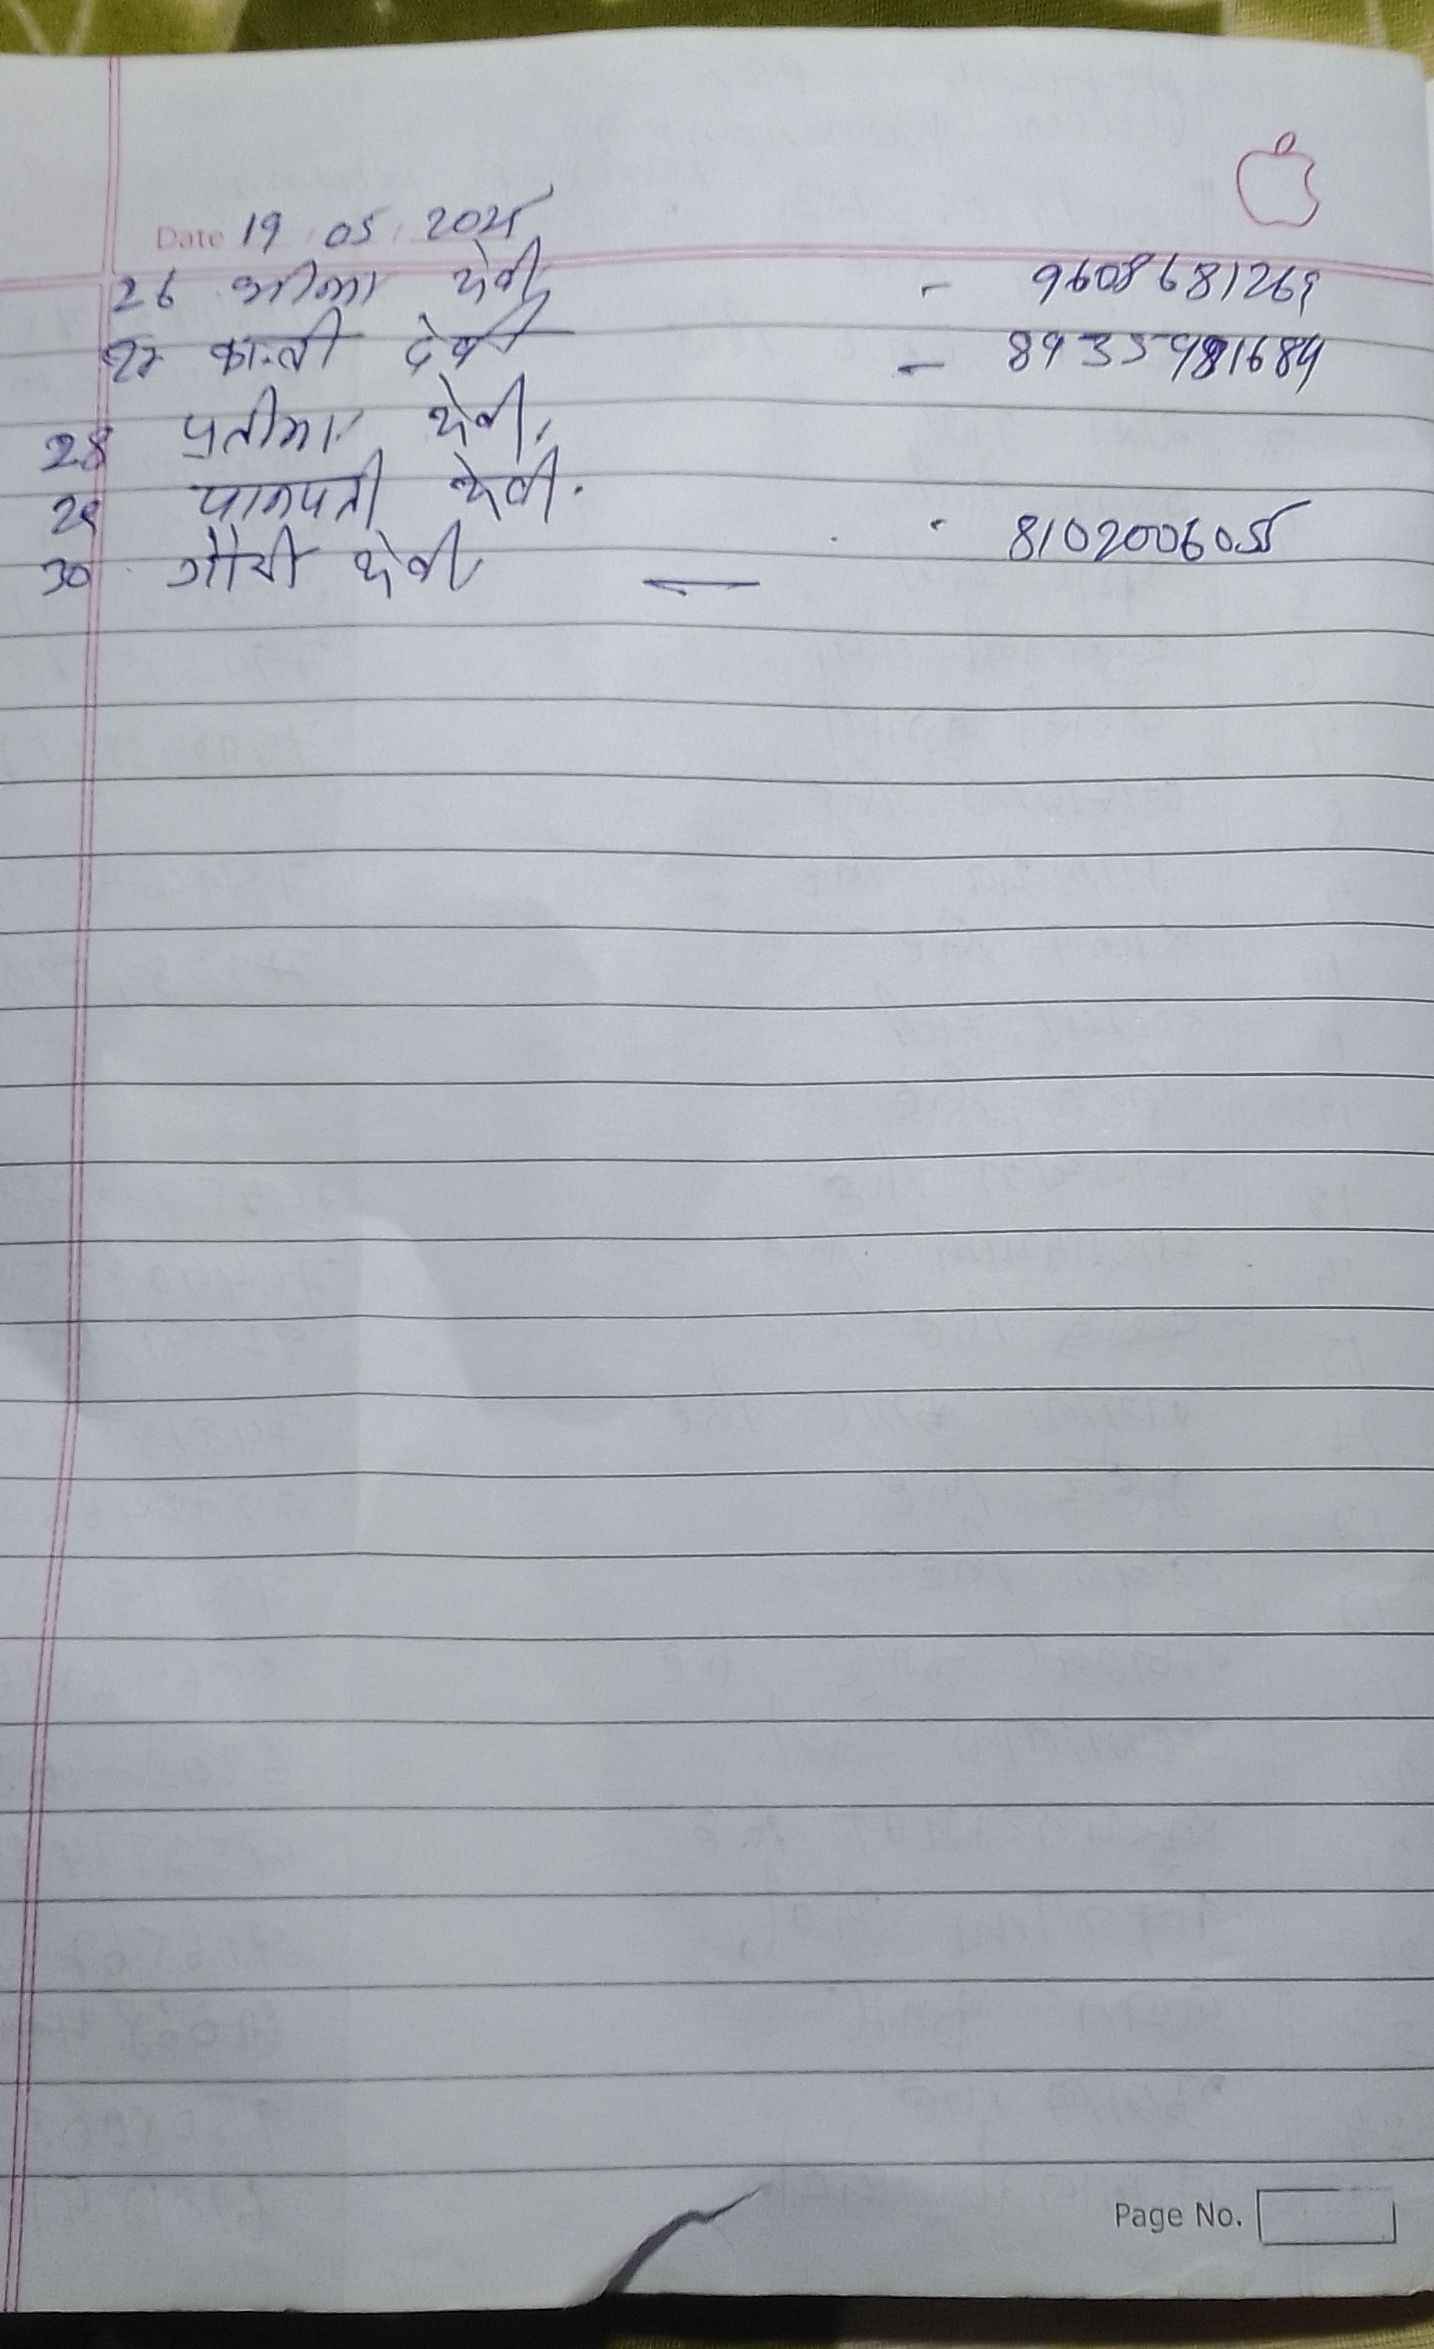 Date 19 05 2025
26 मीना देवी - 9608681269
27 कान्ती देवी - 8935981684
28 प्रतीमा देवी
29 पानपती देवी . 8102006055
30 गौरी देवी —
Page No.